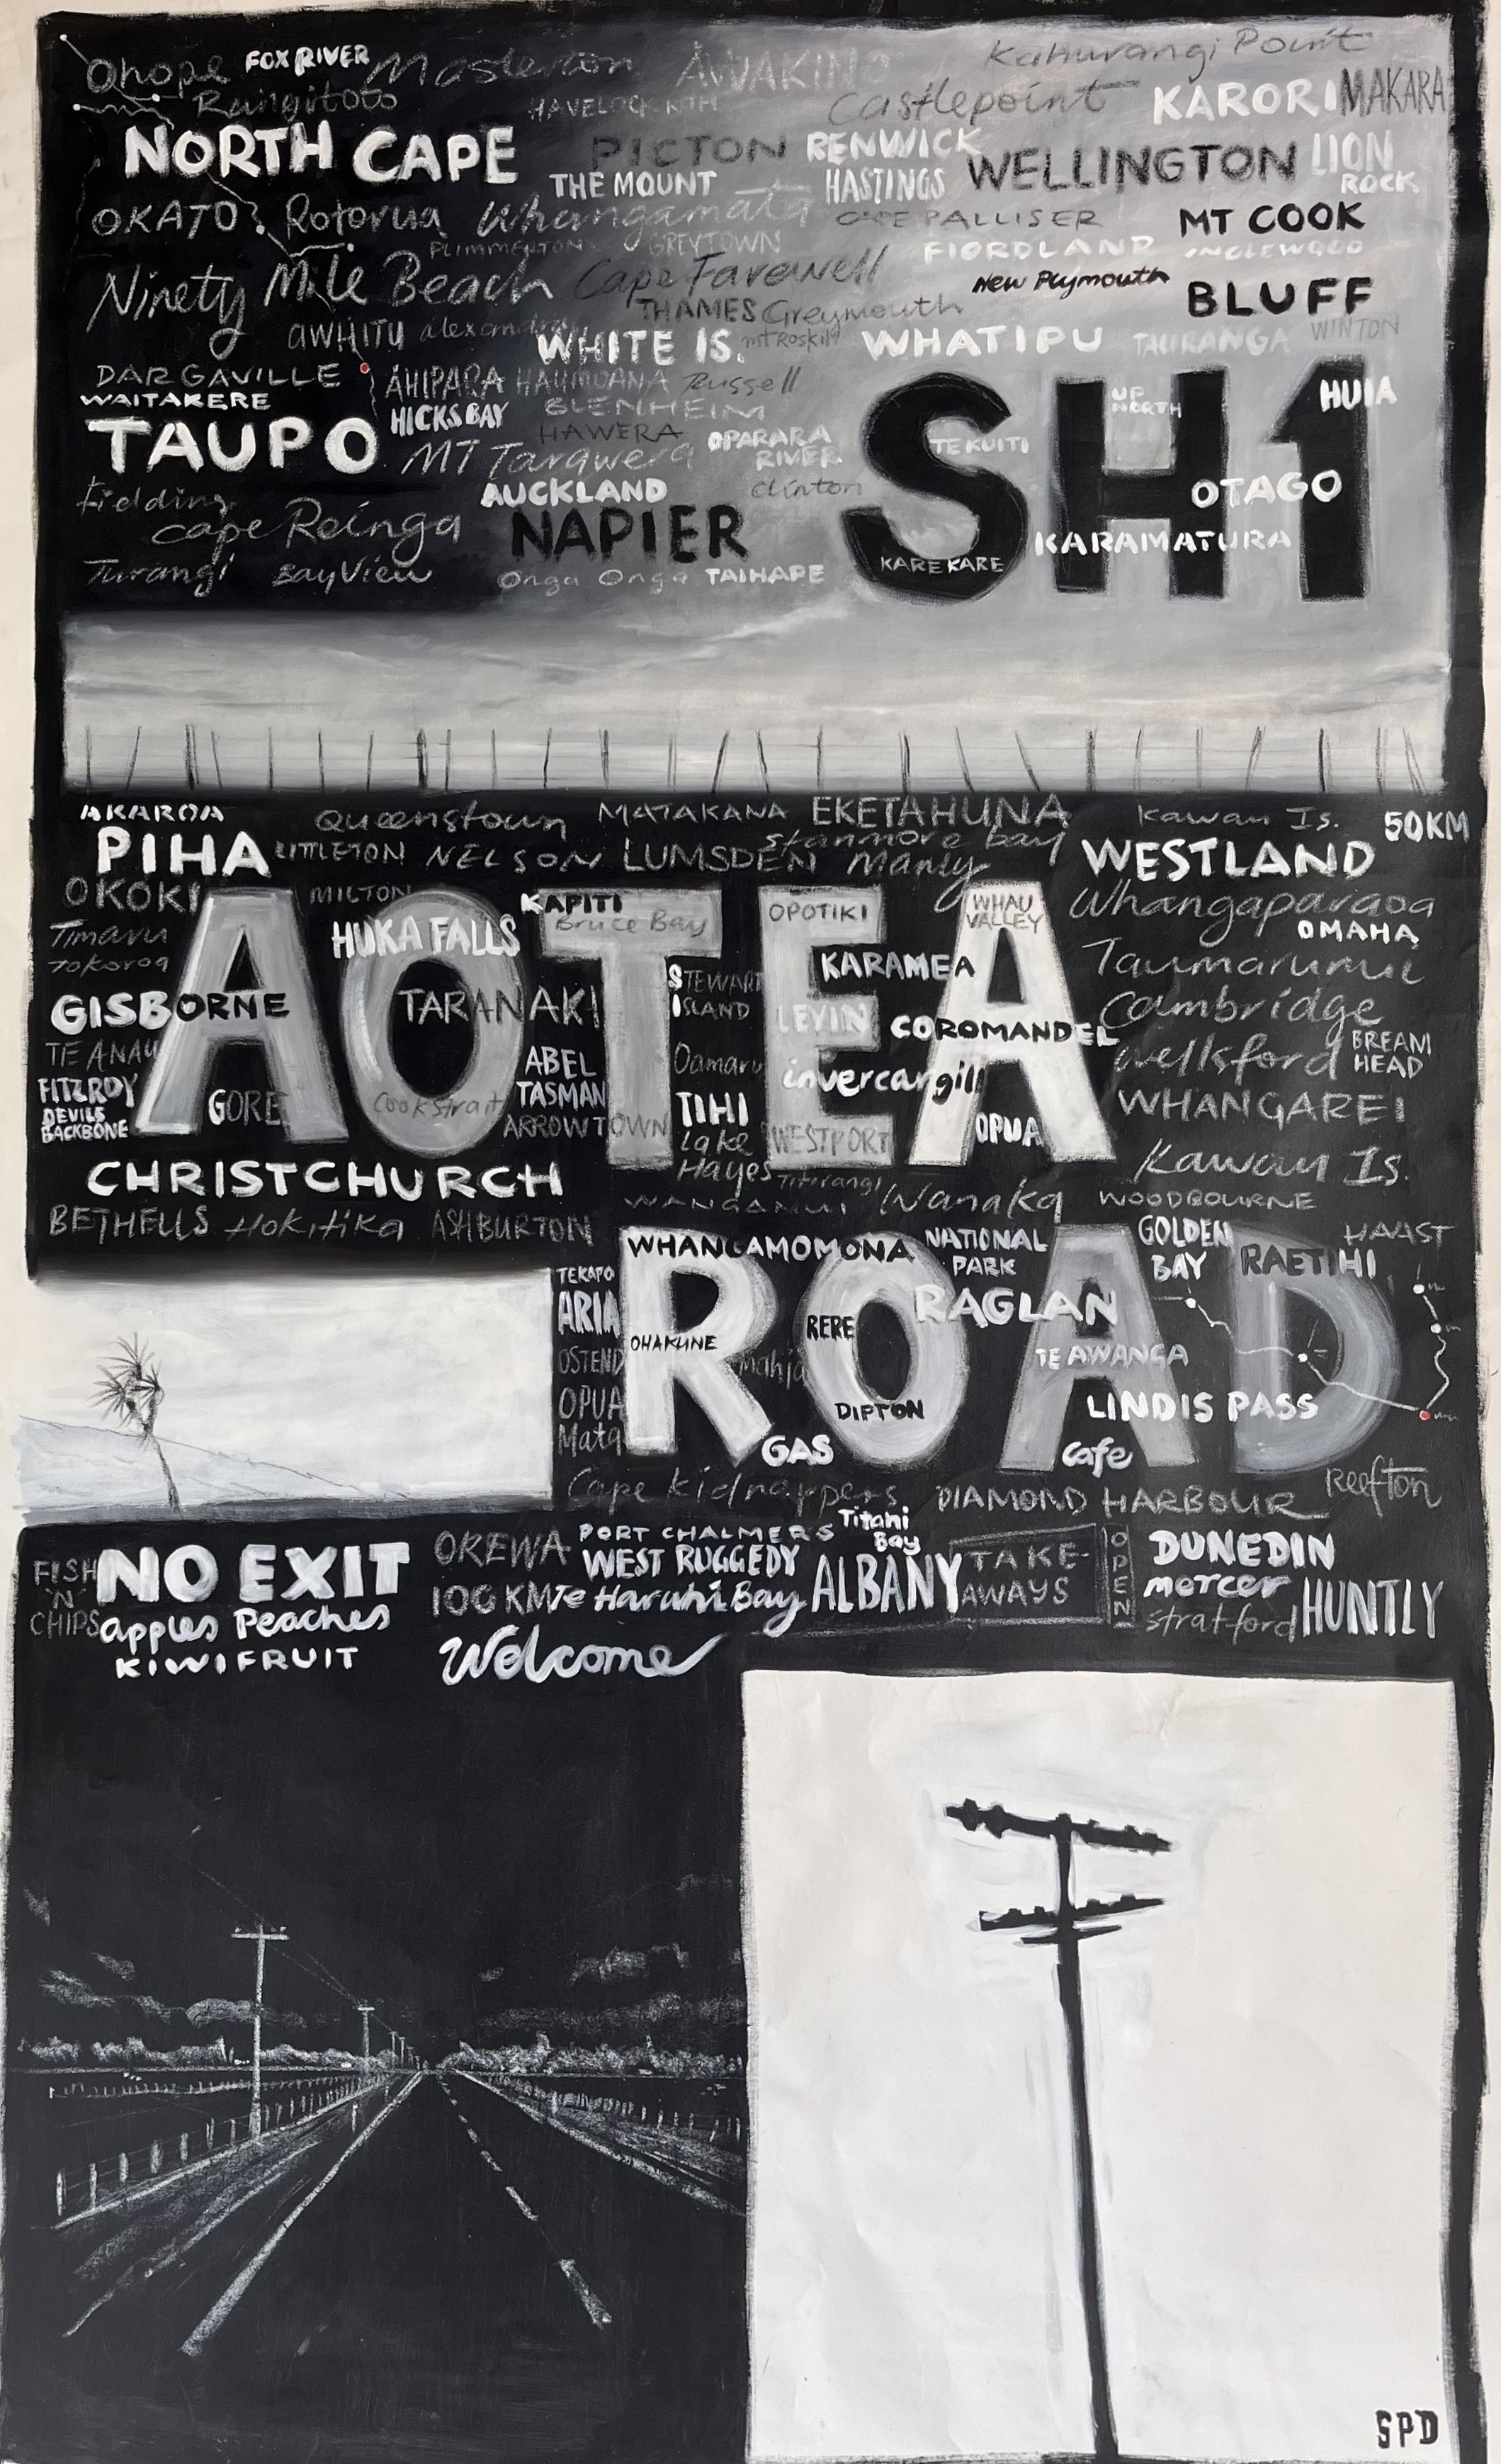 Ohope FOX RIVER Masterton AWAKINO Kahurangi Point
Rangitoto HAVELOCK NTH Castlepoint KARORI MAKARA
NORTH CAPE PICTON RENWICK WELLINGTON LION ROCK
THE MOUNT HASTINGS
OKATO Rotorua Whangamata CAPE PALLISER MT COOK
PLIMMERTON GREYTOWN FIORDLAND INGLEWOOD
Ninety Mile Beach Cape Farewell New Plymouth BLUFF
THAMES Greymouth
AWHITU alexandra WHITE IS. mt Roskill WHATIPU TAURANGA WINTON
DARGAVILLE AHIPARA HAUMOANA Russell SH1 UP NORTH HUIA
WAITAKERE HICKS BAY BLENHEIM
TAUPO HAWERA OPARARA RIVER TE KUITI
MT Tarawera
Fielding AUCKLAND Clinton OTAGO
Cape Reinga NAPIER KARAMATURA
Turangi Bay View Onga Onga TAIHAPE KARE KARE
AKAROA Queenstown MATAKANA EKETAHUNA Kawau Is. 50KM
stanmore bay
PIHA LITTLETON NELSON LUMSDEN Manly WESTLAND
OKOKI MILTON KAPITI OPOTIKI WHAU VALLEY Whangaparaoa
AOTEA
Timaru HUKA FALLS Bruce Bay OMAHA
Tokoroa STEWART ISLAND KARAMEA Taumarunui
GISBORNE TARANAKI LEVIN COROMANDEL Cambridge
TE ANAU ABEL TASMAN Oamaru invercargill Wellsford BREAM HEAD
FITZROY GORE Cook Strait TIHI WHANGAREI
DEVILS BACKBONE ARROWTOWN Lake Hayes WESTPORT OPUA
CHRISTCHURCH Titirangi Kawau Is.
WANGANUI Wanaka WOODBOURNE
BETHELLS Hokitika ASHBURTON
WHANGAMOMONA NATIONAL PARK GOLDEN BAY RAETIHI HAAST
ROAD
TEKAPO
ARIA OHAKUNE RERE RAGLAN
OSTEND mahia TE AWANGA
OPUA DIPTON LINDIS PASS
Mata GAS Cafe
Cape Kidnappers DIAMOND HARBOUR Reefton
FISH 'N' CHIPS NO EXIT OREWA PORT CHALMERS Titahi Bay TAKE-AWAYS OPEN DUNEDIN
WEST RUGGEDY mercer
apples Peaches 100 KM Te Haruhi Bay ALBANY stratford HUNTLY
KIWIFRUIT Welcome
SPD